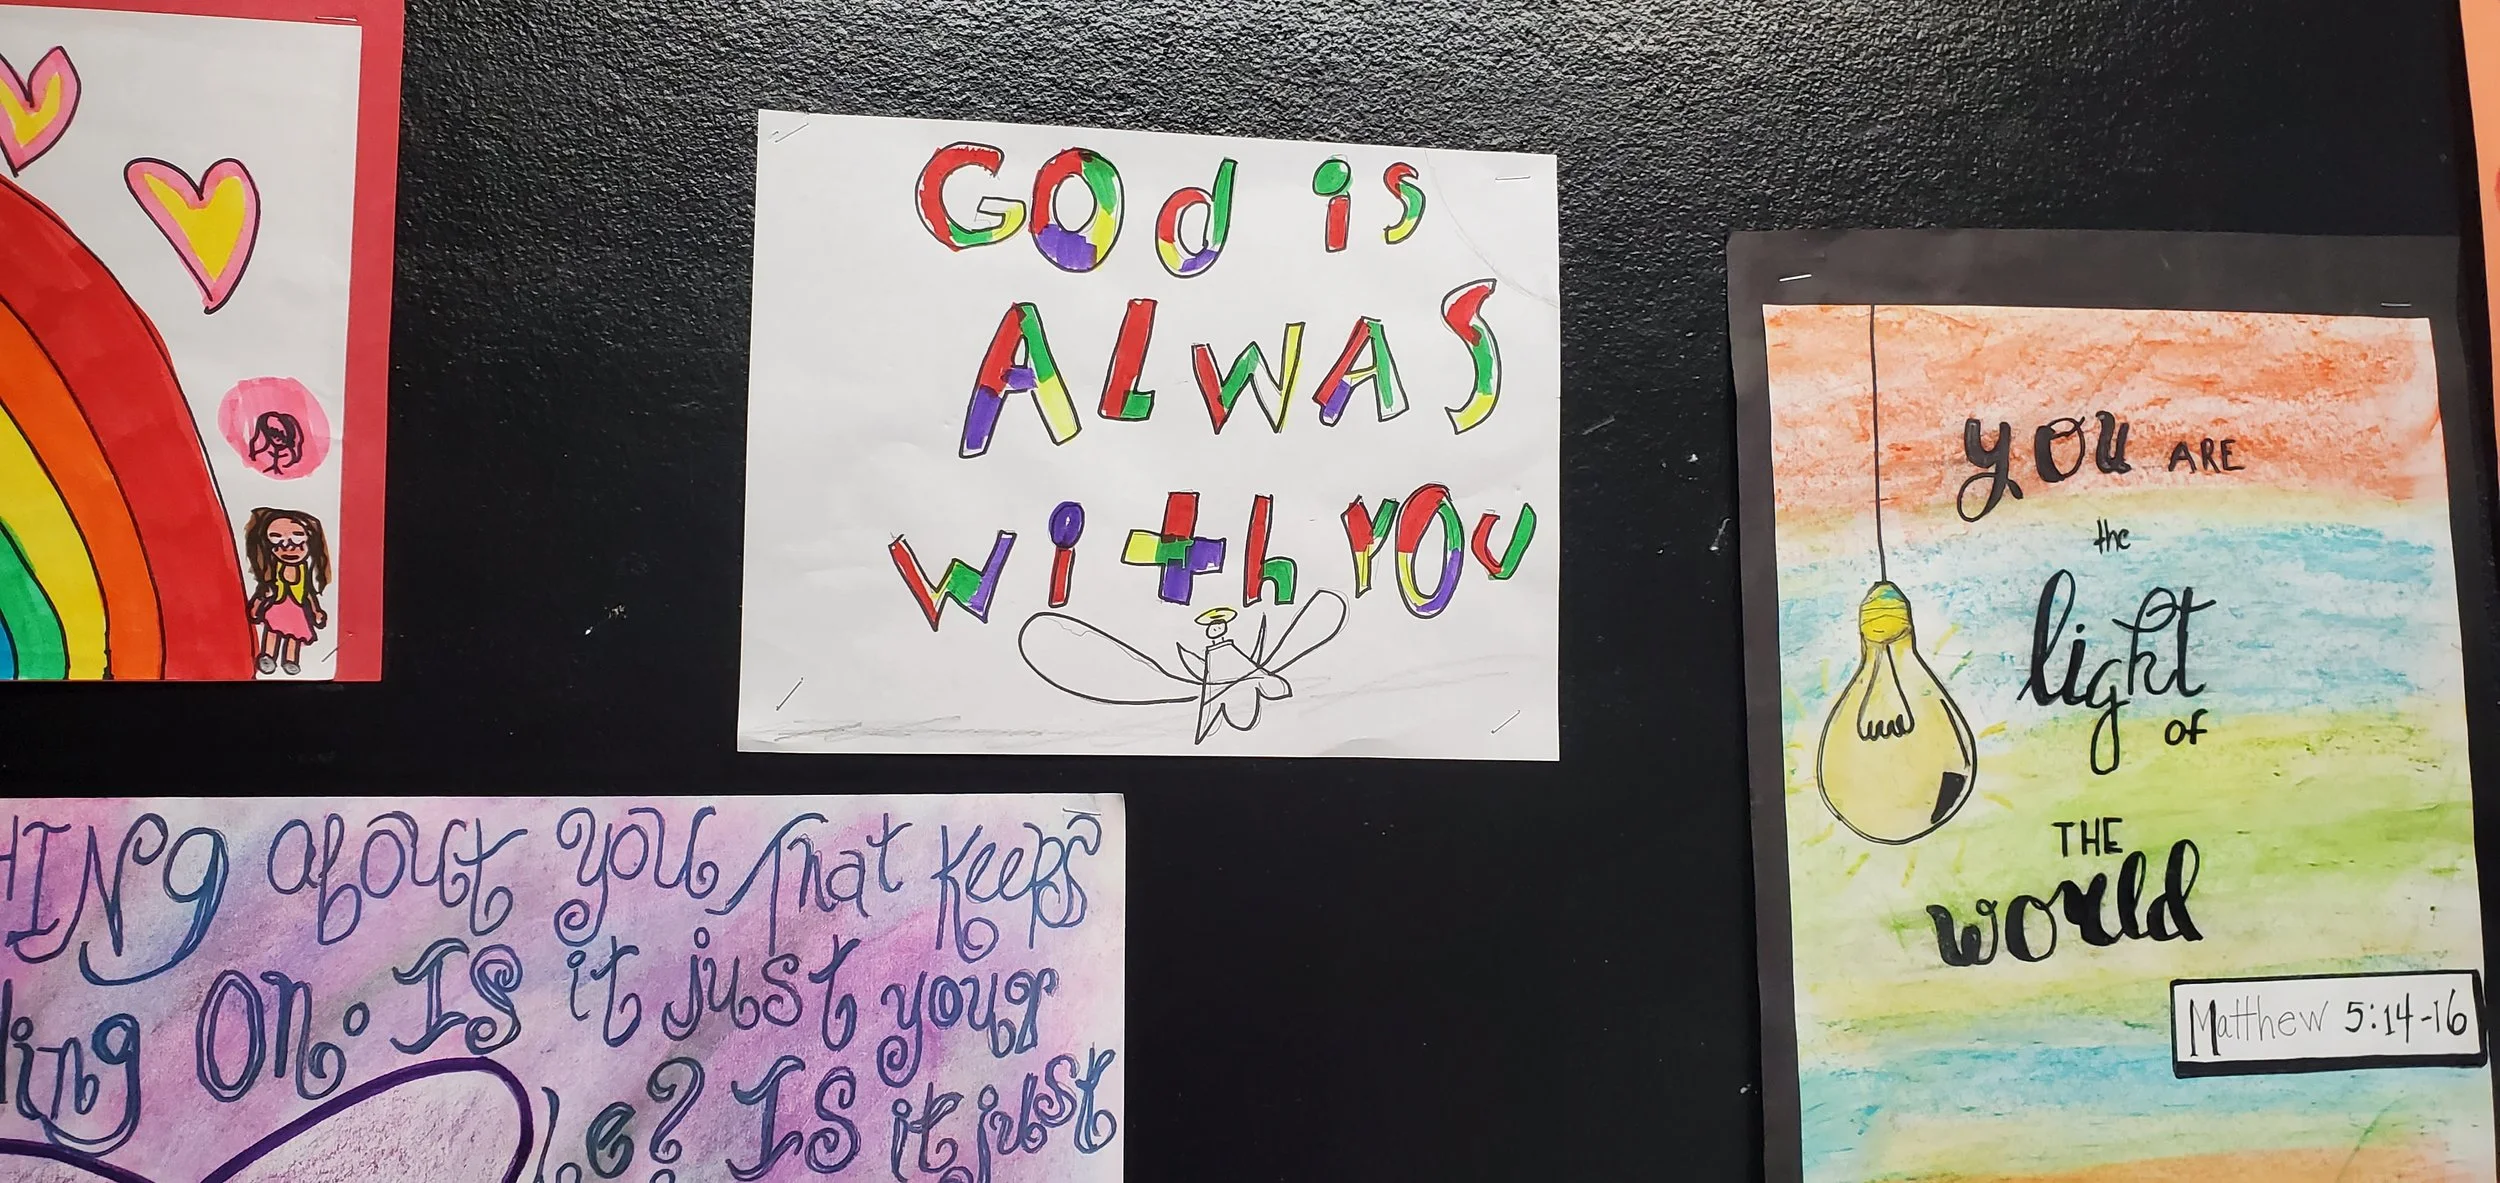 GOd is
ALWAS
with YOU
you ARE
the
light
of
THE
world
Matthew 5:14-16
about you that keeps
On. Is it just your
? Is it just